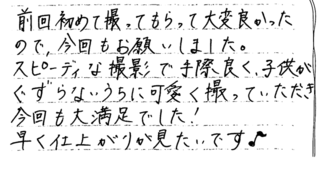 前回初めて撮ってもらって大変良かった
ので、今回もお願いしました。
スピーディな撮影で手際良く、子供が
ぐずらないうちに可愛く撮っていただき
今回も大満足でした!
早く仕上がりが見たいです♪